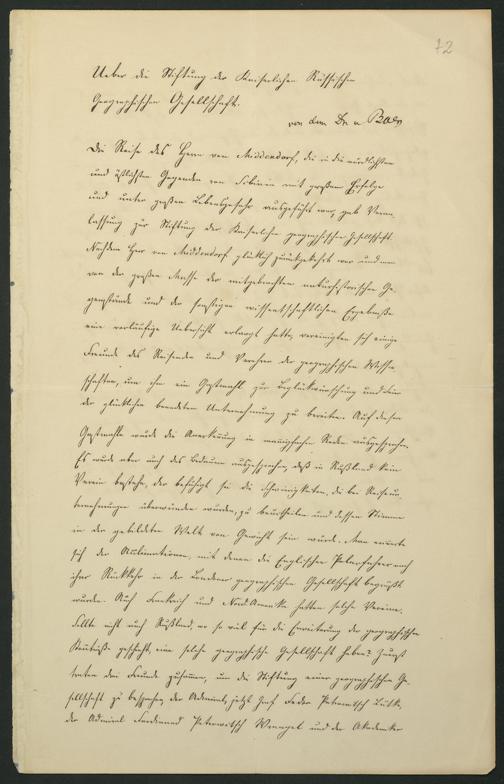 72
Ueber die Stiftung der Kaiserlichen Russischen
Geographischen Gesellschaft.
von dem Dr. v. Baer
Die Reise des Herrn von Middendorf, die in die nördlichsten
und östlichsten Gegenden von Sibirien mit großem Erfolge
und unter großer Lebensgefahr ausgeführt war, gab Veran-
lassung zur Stiftung der Kaiserlichen geographischen Gesellschaft.
Nachdem Herr von Middendorf glücklich zurückgekehrt war und man
von der großen Masse der mitgebrachten naturhistorischen Ge-
genstände und der sonstigen wissentschaftlichen Ergebnisse
eine vorläufige Uebersicht erlangt hatte, vereinigten sich einige
Freunde des Reisenden und Verehrer der geographischen Wissen-
schaften, um ihm ein Gastmahl zur Beglückwünschung und Feier
der glücklichen beendeten Unternehmung zu bereiten. Auf diesem
Gastmahle wurde die Anerkennung in mannigfachen Reden ausgesprochen.
Es wurde aber auch das Bedauern ausgesprochen, daß in Rußland kein
Verein bestehe, der befähigt sei die Schwierigkeiten, die bei Reiseun-
ternehmungen überwunden wurden, zu beurtheilen und dessen Stimme
in der gebildeten Welt von Gewicht sein würde. Man erinnerte
sich der Acclamationen, mit denen die Englischen Polarfahrer nach
ihrer Rückkehr in der Londoner geographischen Gesellschaft begrüßt
wurden. Auch Frankreich und Nord Amerika hatten solche Vereine.
Sollte nicht auch Rußland, wo so viel für die Erweiterung der geographischen
Kenntniß geschieht, eine solche geographische Gesellschaft haben? Zuerst
traten drei Freunde zusammen, um die Stiftung einer geographischen Ge-
sellschaft zu besprechen, der Admiral, jetzt Graf Fedor Petrowitsch Lütke,
der Admiral Ferdinand Petrowitsch Wrangel und der Akademiker